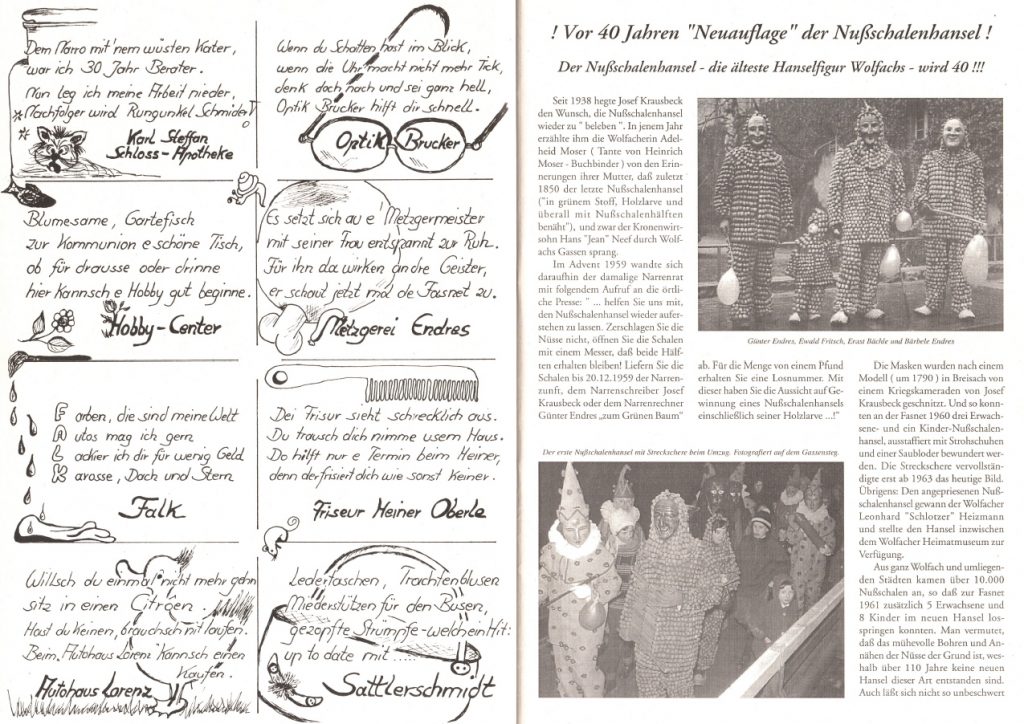 Dem Narro mit'nem wüsten Kater,
war ich 30 Jahr Berater.
Nun leg ich meine Arbeit nieder,
Nachfolger wird Rungunkel Schmider V
Karl Steffan
Schloss-Apotheke
Wenn du Schatten hast im Blick,
wenn die Uhr macht nicht mehr Tick,
denk doch nach und sei ganz hell,
Optik Brucker hilft dir schnell.
Optik Brucker
Blumesame, Gartefisch
zur Kommunion e schöne Tisch,
ob für drausse oder drinne
hier kannsch e Hobby gut beginne.
Hobby-Center
Es setzt sich au e' Metzgermeister
mit seiner Frau entspannt zur Ruh.
Für ihn da wirken andre Geister,
er schaut jetzt mol de Fasnet zu.
Metzgerei Endres
Farben, die sind meine Welt
Autos mag ich gern
Lackier ich dir für wenig Geld
Karosse, Dach und Stern
Falk
Dei Frisur sieht schrecklich aus.
Du trausch dich nimme usem Haus.
Do hilft nur e Termin beim Heiner,
denn der frisiert dich wie sonst Keiner.
Friseur Heiner Oberle
Willsch du einmal nicht mehr gehn
sitz in einen Citroen.
Hast du Keinen, brauchsch mit laufen.
Beim "Autohaus Lorenz" kannsch einen
Kaufen.
Autohaus Lorenz
Ledertaschen, Trachtenblusen
Miederstützen für den Busen,
gezopfte Strümpfe-welch ein Hit:
up to date mit .....
Sattlerschmidt
! Vor 40 Jahren "Neuauflage" der Nußschalenhansel !
Der Nußschalenhansel - die älteste Hanselfigur Wolfachs - wird 40 !!!
Seit 1938 hegte Josef Krausbeck
den Wunsch, die Nußschalenhansel
wieder zu " beleben ". In jenem Jahr
erzählte ihm die Wolfacherin Adel-
heid Moser ( Tante von Heinrich
Moser - Buchbinder ) von den Erin-
nerungen ihrer Mutter, daß zuletzt
1850 der letzte Nußschalenhansel
("in grünem Stoff, Holzlarve und
überall mit Nußschalenhälften
benäht"), und zwar der Kronenwirt-
sohn Hans "Jean" Neef durch Wolf-
achs Gassen sprang.
Im Advent 1959 wandte sich
daraufhin der damalige Narrenrat
mit folgendem Aufruf an die örtli-
che Presse: " ... helfen Sie uns mit,
den Nußschalenhansel wieder aufer-
stehen zu lassen. Zerschlagen Sie die
Nüsse nicht, öffnen Sie die Schalen
mit einem Messer, daß beide Hälf-
ten erhalten bleiben! Liefern Sie die
Schalen bis 20.12.1959 der Narren-
zunft, dem Narrenschreiber Josef
Krausbeck oder dem Narrenrechner
Günter Endres „zum Grünen Baum“
Günter Endres, Ewald Fritsch, Erast Bächle und Bärbele Endres
ab. Für die Menge von einem Pfund
erhalten Sie eine Losnummer. Mit
dieser haben Sie die Aussicht auf Ge-
winnung eines Nußschalenhansels
einschließlich seiner Holzlarve ...!"
Der erste Nußschalenhansel mit Streckschere beim Umzug. Fotografiert auf dem Gassensteg.
Die Masken wurden nach einem
Modell ( um 1790 ) in Breisach von
einem Kriegskameraden von Josef
Krausbeck geschnitzt. Und so konn-
ten an der Fasnet 1960 drei Erwach-
sene- und ein Kinder-Nußschalen-
hansel, ausstaffiert mit Strohschuhen
und einer Saubloder bewundert wer-
den. Die Streckschere vervollstän-
digte erst ab 1963 das heutige Bild.
Übrigens: Den angepriesenen Nuß-
schalenhansel gewann der Wolfacher
Leonhard "Schlotzer" Heizmann
und stellte den Hansel inzwischen
dem Wolfacher Heimatmuseum zur
Verfügung.
Aus ganz Wolfach und umliegen-
den Städten kamen über 10.000
Nußschalen an, so daß zur Fasnet
1961 zusätzlich 5 Erwachsene und
8 Kinder im neuen Hansel los-
springen konnten. Man vermutet,
daß das mühevolle Bohren und An-
nähen der Nüsse der Grund ist, wes-
halb über 110 Jahre keine neuen
Hansel dieser Art entstanden sind.
Auch läßt sich nicht so unbeschwert